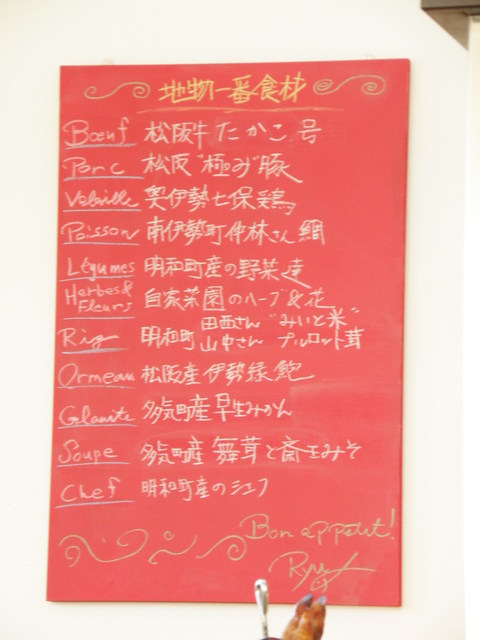 地物一番食材
Bœuf 松阪牛 たかこ号
Porc 松阪"極み"豚
Volaille 奥伊勢七保鶏
Poisson 南伊勢町仲林さん鯛
Légumes 明和町産の野菜達
Herbes & 自家菜園のハーブ&花
Fleurs
Riz 明和町 田西さん"みいと米"
山中さん プルロット茸
Ormeau 松阪産伊勢緑鮑
多気町産早生みかん
Soupe 多気町産 舞茸と斎王みそ
Chef 明和町産のシェフ
Bon appétit!